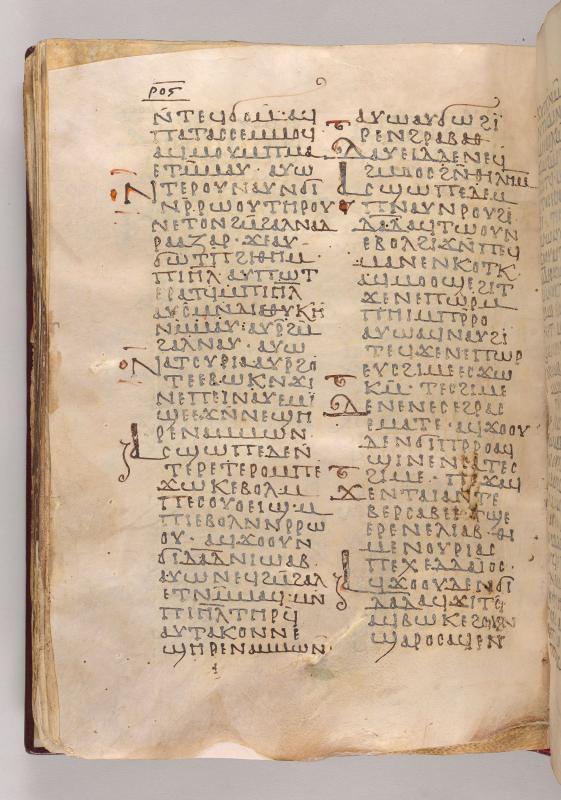 ⲣⲟⲋ
ⲛ̄ⲧⲉϥϭⲟⲙ · ⲁϥ
ⲡⲁⲧⲁⲥⲥⲉⲙⲙⲟϥ
ⲁϥⲙⲟⲩⲙⲡⲙⲁ
ⲉⲧⲙ̄ⲙⲁⲩ · ⲁⲩⲱ
ⲛⲧⲉⲣⲟⲩⲛⲁⲩⲛϭⲓ
ⲛⲣⲣⲱⲟⲩⲧⲏⲣⲟⲩ
ⲛⲉⲧⲟⲛϩⲙ̄ϩⲁⲗⲛⲁⲇ
ⲣⲁⲁⲍⲁⲣ · ϫⲉⲁⲩ
ϭⲱⲧⲡϩⲓⲑⲏⲙ
ⲡⲓⲏ̄ⲗ · ⲁⲩⲡⲱⲧ
ⲉⲣⲁⲧϥⲙ̄ⲡⲓⲏ̄ⲗ
ⲁⲩⲥⲙⲛⲇⲓⲁⲑⲩⲕⲏ
ⲛⲙ̄ⲙⲁⲩ · ⲁⲩⲣϩⲙ̄
ϩⲁⲗⲛⲁⲩ · ⲁⲩⲱ
ⲛⲁⲧⲥⲩⲣⲓⲁⲁⲩⲣϩⲟ
ⲧⲉⲉⲃⲱⲕⲛϫⲓ
ⲛⲉⲡⲉⲓⲛⲁⲩⲉⲙⲓ
ϣⲉⲉϫⲛ̄ⲛⲉϣⲏ
ⲣⲉⲛⲁⲙⲙⲱⲛ
ⲁⲥϣⲱⲡⲉⲇⲉⲛ̄
ⲧⲉⲣⲉⲧⲉⲣⲟⲙⲡⲉ
ϫⲱⲕⲉⲃⲟⲗⲙ
ⲡⲉⲥⲟⲩⲟⲉⲓϣⲙ
ⲡⲓⲉⲃⲟⲗⲛⲛⲣⲣⲱ
ⲟⲩ · ⲁϥϫⲟⲟⲩⲛ
ϭⲓⲇⲁⲇⲛⲓⲱⲁⲃ
ⲁⲩⲱⲛⲉϥϩⲙ̄ϩⲁⲗ
ⲉⲧⲛⲙ̄ⲙⲁϥ · ⲙⲛ̄
ⲡⲓⲏ̄ⲗⲧⲏⲣϥ̄
ⲁⲩⲧⲁⲕⲟⲛⲛⲉ
ϣⲏⲣⲉⲛⲁⲙⲙⲱⲛ̄
ⲁⲩⲱⲁⲩϭⲱϩⲓ
ⲣⲉⲛϩⲣⲁⲃⲁⲑ
ⲇⲁⲩⲉⲓⲇⲇⲉⲛⲉϥ
ϩⲙⲟⲟⲥϩⲛ̄ⲑⲓⲗⲏⲙ̄
ⲁⲥϣⲱⲡⲉⲇⲉⲙ
ⲡⲛⲁⲩⲛⲣⲟⲩϩⲉ
ⲇⲁⲇⲁϥⲧⲱⲟⲩⲛ
ⲉⲃⲟⲗϩⲓϫⲙ̄ⲡⲉϥ
ⲙⲁⲛⲉⲛⲕⲟⲧⲕ
ⲁϥⲙⲟⲟϣⲉϩⲓⲧ
ϫⲉⲛⲉⲡⲱⲣⲙ
ⲡⲏⲓⲙⲡⲣ̄ⲣⲟ
ⲁⲩⲱⲁϥⲛⲁⲩϩⲓ
ⲧⲉϥϫⲉⲛⲉⲡⲱⲣ
ⲉⲩⲥϩⲓⲙⲉⲉⲥϫⲱ
ⲕⲙ̄ · ⲧⲉⲥϩⲓⲙⲉ
ⲇⲉⲛⲉⲛⲉⲥⲉϩⲣⲁⲥ
ⲉⲙⲁⲧⲉ · ⲁϥϫⲟⲟⲩ
ⲇⲉⲛϭⲓⲡⲣⲣⲟⲁϥ
ϣⲓⲛⲉⲛⲥⲁⲧⲉⲥ
ϩⲓⲙⲉ · ⲡⲉϫⲁϥ
ϫⲉⲛⲧⲁⲓⲁⲛⲧⲉ
ⲃⲉⲣⲥⲁⲃⲉⲉ ⲧϣⲉ
ⲉⲣⲉⲛⲉⲗⲓⲁⲃ · ⲑⲓ
ⲙⲉⲛⲟⲩⲣⲓⲁⲥ
ⲡⲉⲭⲉⲇⲇⲁⲓⲟⲥ ·
ⲁϥϫⲟⲟⲩⲇⲉⲛϭⲓ
ⲇⲁⲇⲁϥϫⲓⲧⲥ̄
ⲁϥⲃⲱⲕⲉϩⲟⲩⲛ
ϣⲁⲣⲟⲥⲁϥⲉⲛ